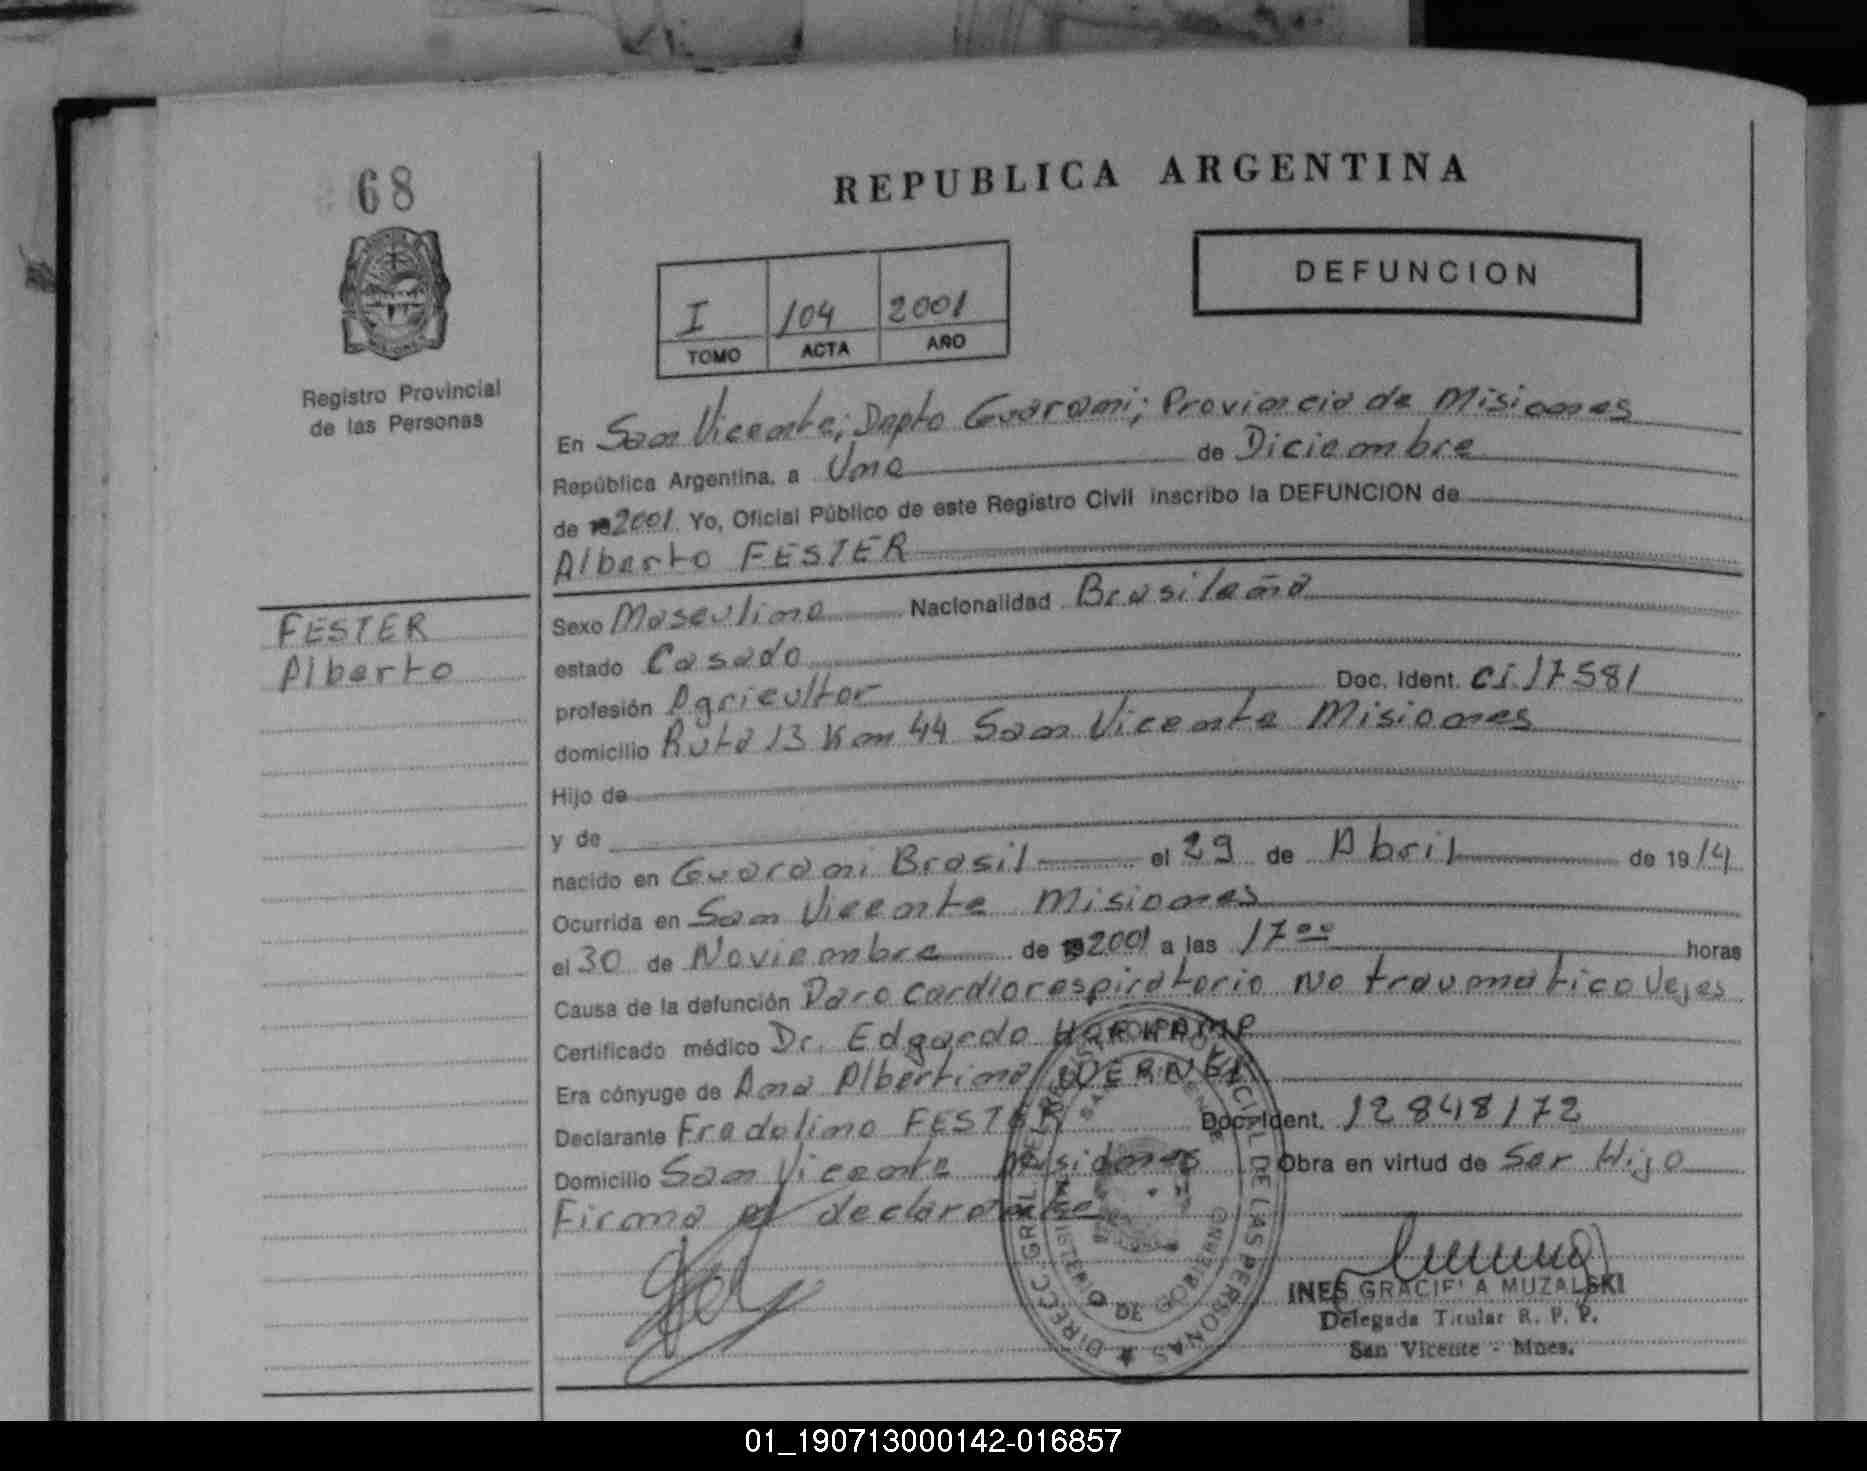 68
REPUBLICA ARGENTINA
DEFUNCION
I 104 2001
TOMO ACTA AÑO
Registro Provincial
de las Personas
FESTER
Alberto
En San Vicente; Dapto Guarani; Provincia de Misiones
República Argentina, a Uno de Diciembre
de 19 2001 Yo, Oficial Público de este Registro Civil inscribo la DEFUNCION de
Alberto FESTER
Sexo Masculino Nacionalidad Brasileña
estado Casado
profesión Agricultor Doc. Ident. CI 17581
domicilio Ruta 13 Km 44 San Vicente Misiones
Hijo de
y de
nacido en Guarani Brasil el 29 de Abril de 19 14
Ocurrida en San Vicente Misiones
el 30 de Noviembre de 19 2001 a las 17 00 horas
Causa de la defunción Paro cardiorespiratorio No traumatico Vejes
Certificado médico Dr. Edgardo
Era cónyuge de Ana Albertina
Declarante Fradolino FESTER Doc. Ident. 12848172
Domicilio San Vicente Misiones Obra en virtud de Ser Hijo
Firma el declarante
DIRECC. GRAL. DEL REGISTRO PROVINCIAL DE LAS PERSONAS
MINISTERIO DE GOBIERNO
SAN VICENTE
INES GRACIELA MUZALSKI
Delegada Titular R. P. P.
San Vicente - Mnes.
01_190713000142-016857